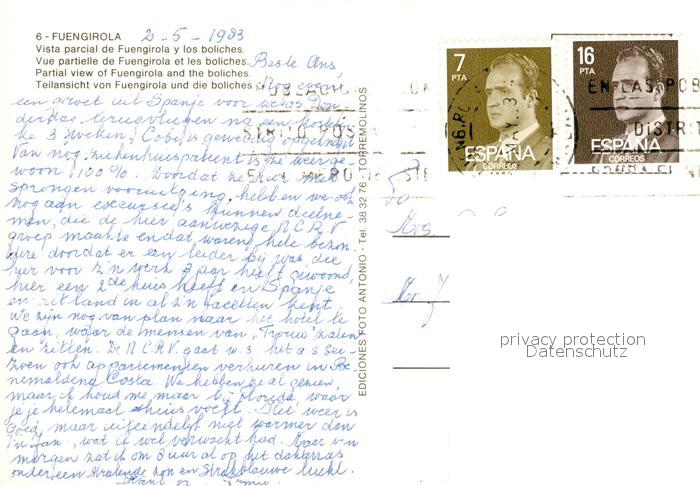 6 - FUENGIROLA 2-5-1983
Vista parcial de Fuengirola y los boliches.
Vue partielle de Fuengirola et les boliches.
Partial view of Fuengirola and the boliches.
Teilansicht von Fuengirola und die boliches
Beste Ans,
Nog even
een groet uit Spanje voor we as Don-
derdag terugvliegen na een kostelij-
ke 3 weken. Cobie is geweldig opgeknapt
Van nog ziekenhuispatient is ze weer ge-
woon 100%. Doordat ze hier met
sprongen vooruitging, hebben we ook
nog aan excursies kunnen deelne-
men, die de hier aanwezige N.C.R.V.
groep maakte en dat waren hele bezon-
dere doordat er een leider bij was, die
hier voor z'n werk jaar heeft gewoond,
hier een 2de huis heeft en Spanje
en uit land in al z'n facetten kent.
We zijn nog van plan naar het hotel te
gaan, waar de mensen van "Trouw" zaten
en zitten. De N.C.R.V. gaat w.s. het a.s. sei-
zoen ook appartementen verhuren in Be-
nemaldena Costa. We hebben ze al gezien,
maar ik houd me maar bij Florida, waar
je je helemaal thuis voelt. Het weer is
goed, maar uiteindelijk niet warmer dan
in Jan., wat ik wel verwacht had. Maar v.m
morgen zat ik om 8 uur al op het dakterras
onder een stralende zon en strakblauwe lucht.
EDICIONES FOTO ANTONIO - Tel. 38 32 76 - TORREMOLINOS
7 PTA
ESPAÑA
CORREOS
16 PTA
ESPAÑA
CORREOS
EN LAS POB
DISTRIT
privacy protection
Datenschutz